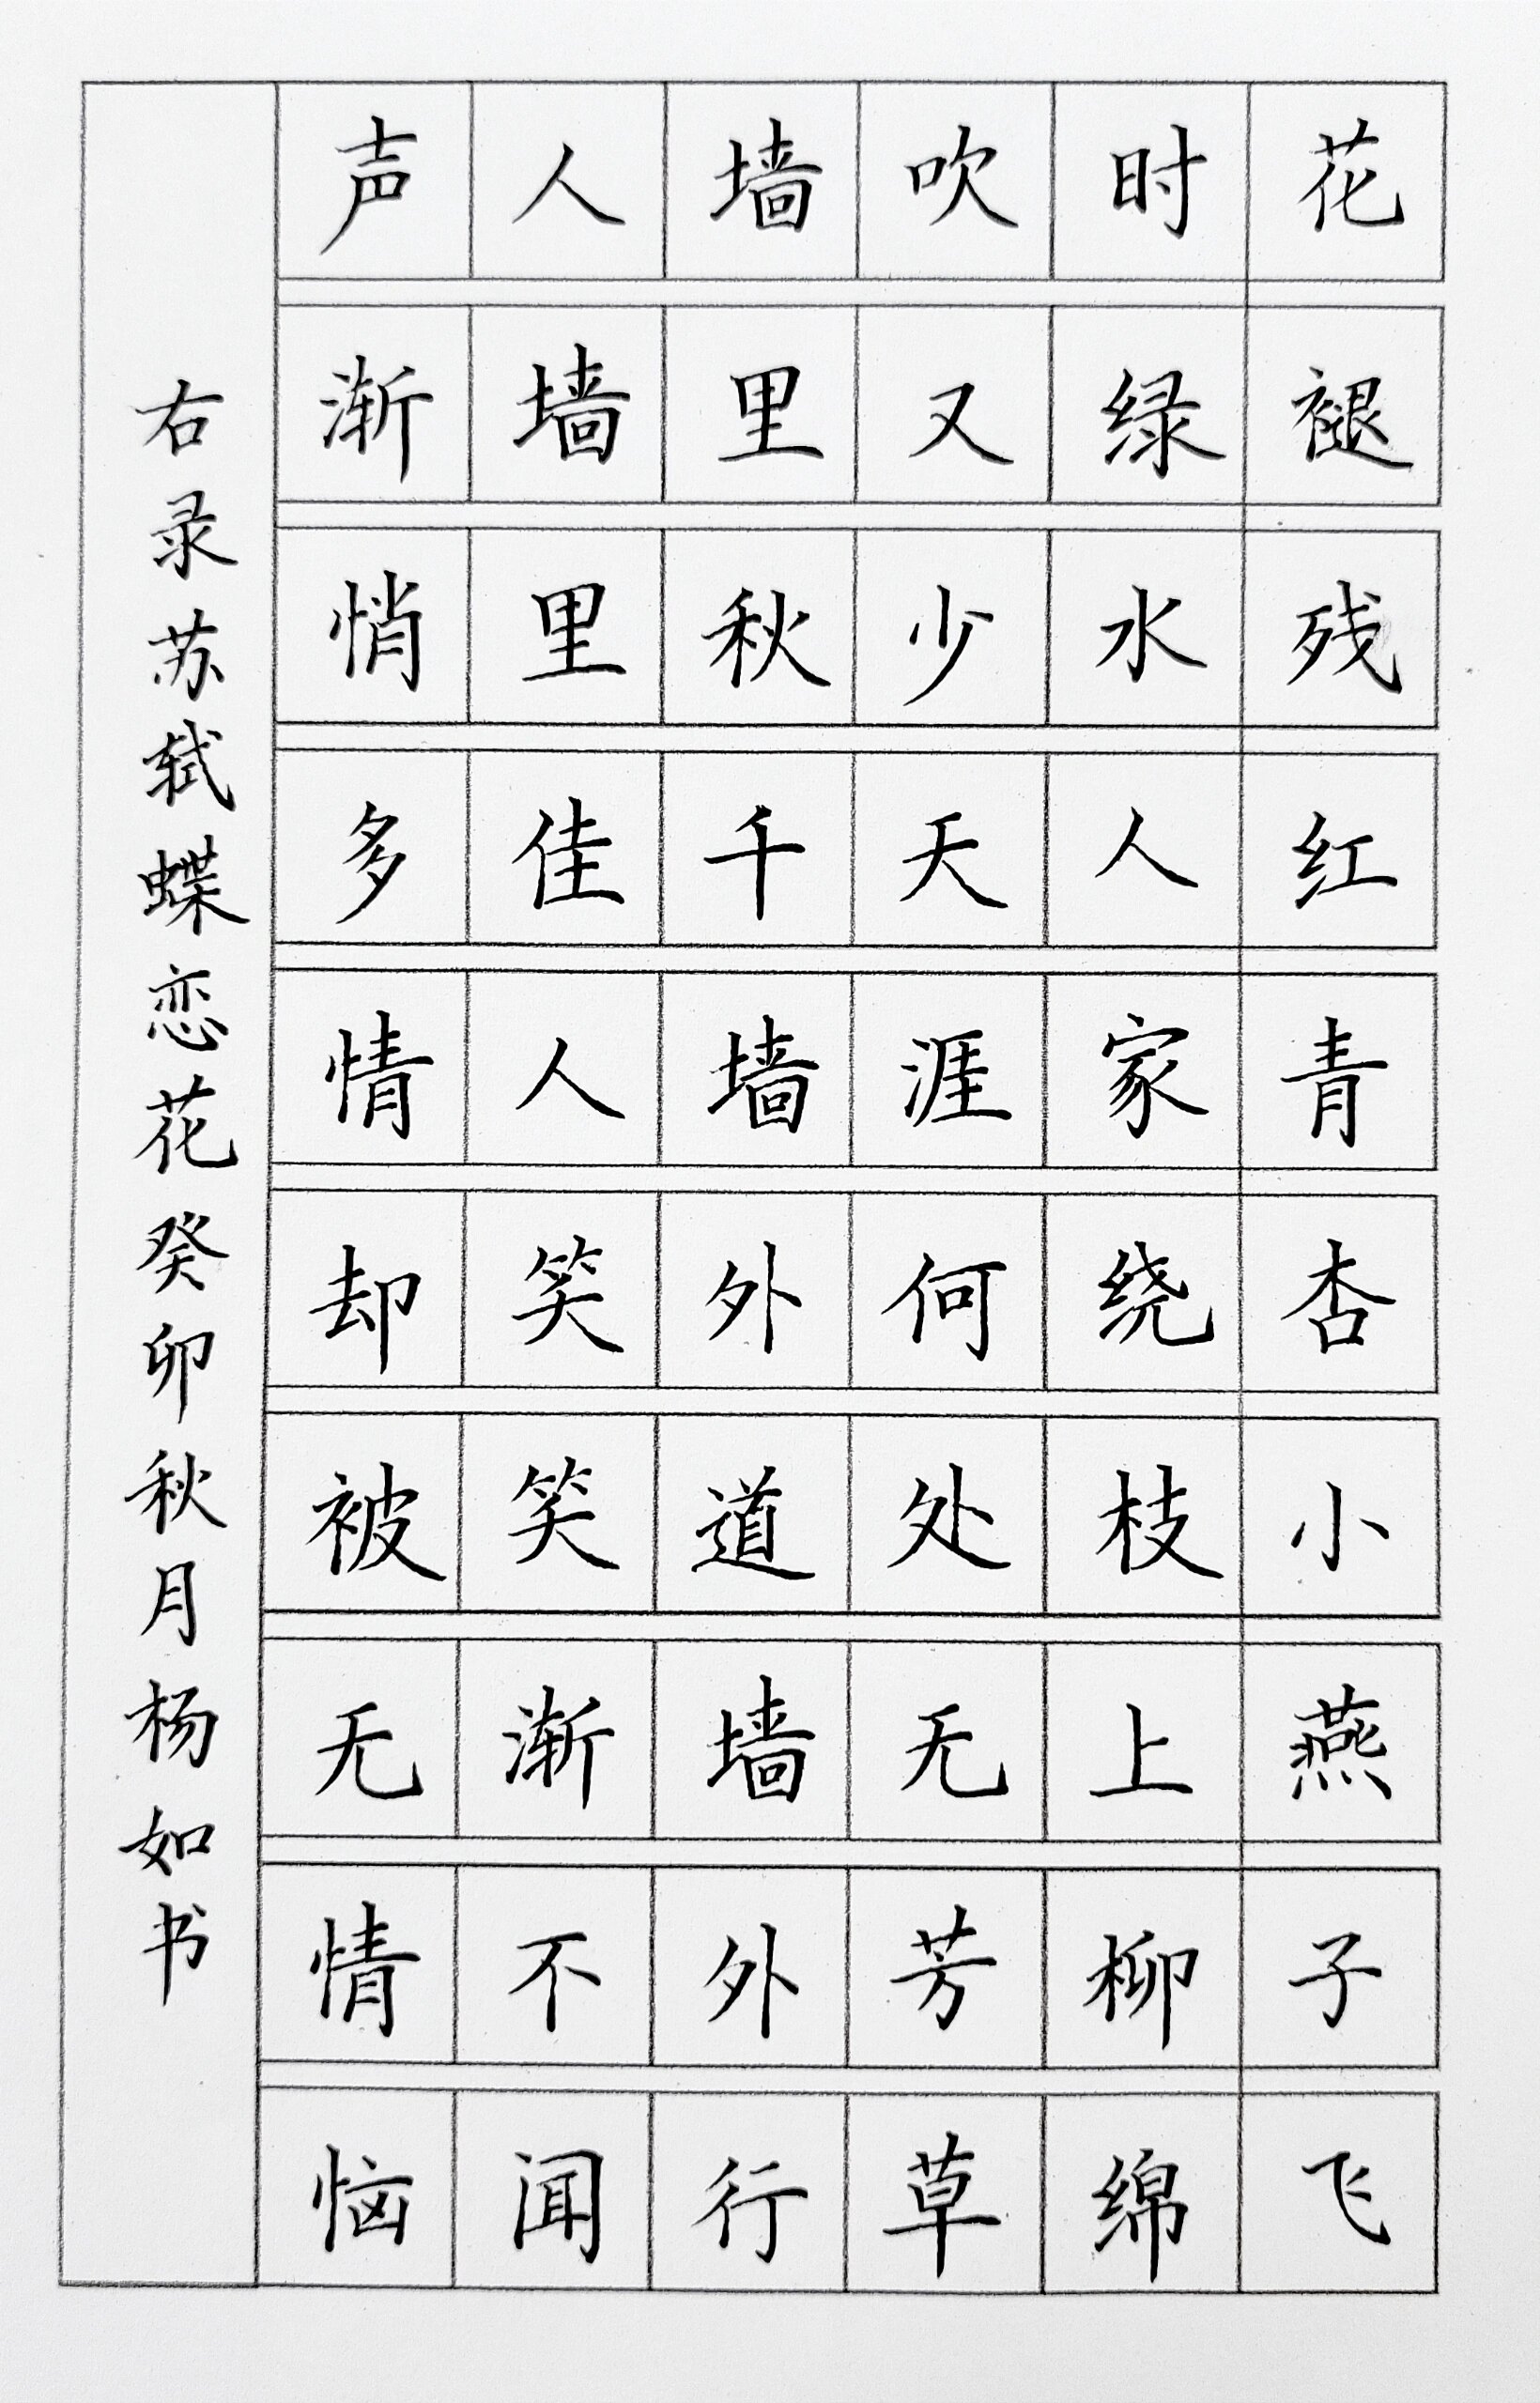 花褪残红青杏小燕子飞
时绿水人家绕枝上柳绵
吹又少天涯何处无芳草
墙里秋千墙外道墙外行
人墙里佳人笑笑渐不闻
声渐悄多情却被无情恼
右录苏轼蝶恋花癸卯秋月杨如书